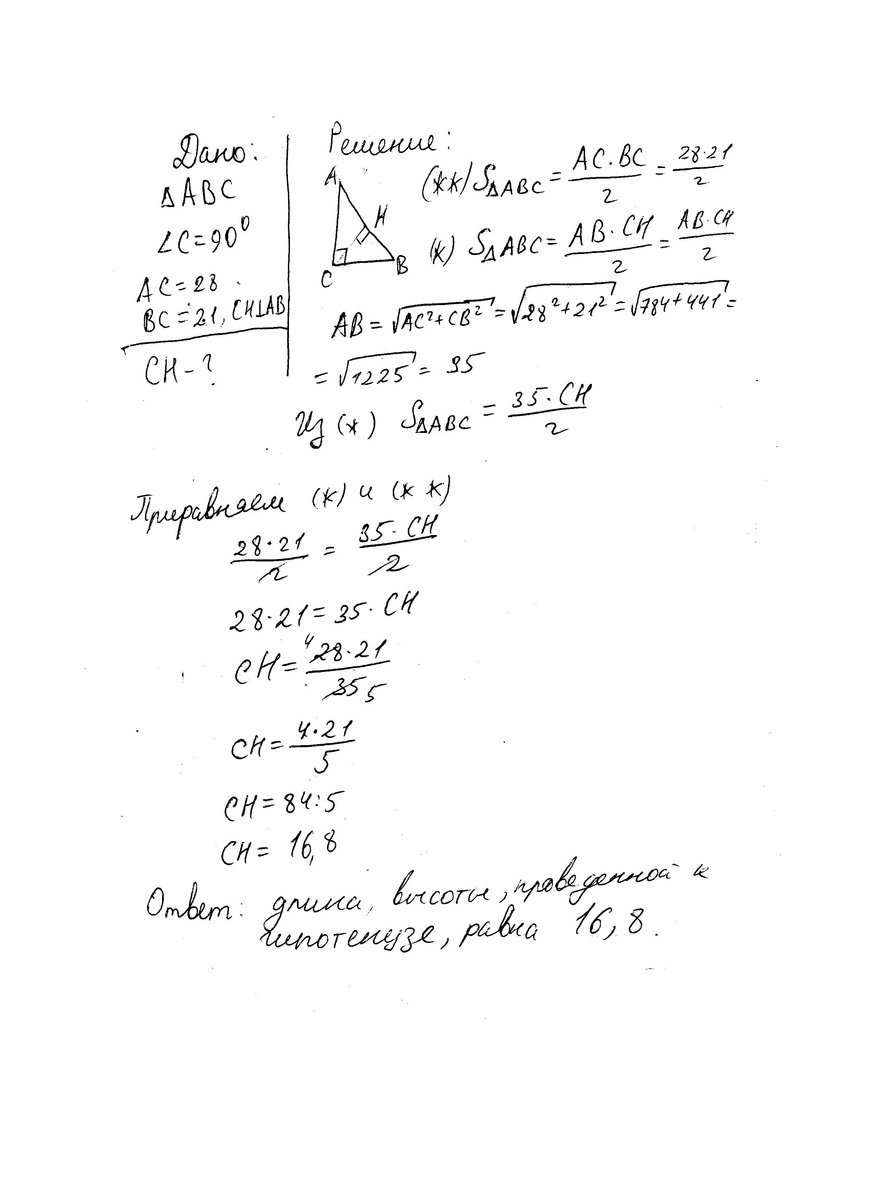 Дано:
ΔABC
∠C=90⁰
AC=28
BC=21, CH⊥AB
CH-?
Решение:
A
H
C
B
(**) SΔABC = AC·BC/2 = 28·21/2
(*) SΔABC = AB·CH/2 = AB·CH/2
AB = √(AC²+CB²) = √(28²+21²) = √(784+441) =
= √1225 = 35
Из (*) SΔABC = 35·CH/2
Приравняем (*) и (**)
28·21/2 = 35·CH/2
28·21 = 35·CH
CH = 4 28·21/35 5
CH = 4·21/5
CH = 84:5
CH = 16,8
Ответ: длина, высоты, проведенной к
гипотенузе, равна 16,8.